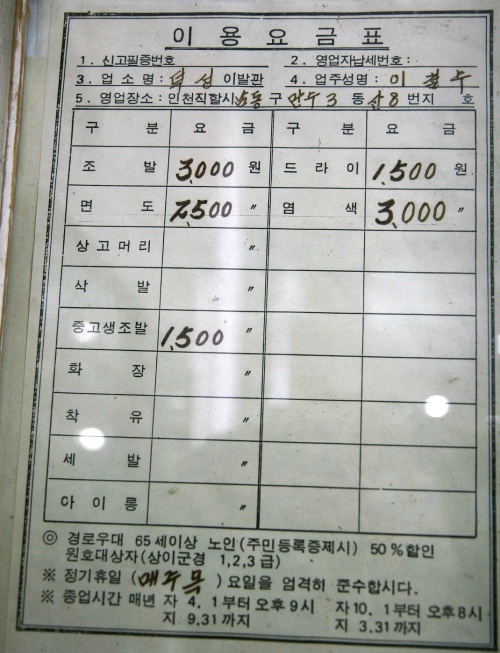 이용요금표
1. 신고필증번호 2. 영업자납세번호:
3. 업소명: 덕성 이발관 4. 업주성명: 이
5. 영업장소: 인천직할시 남동구 만수 3동 산8 번지 호
구분 요금 구분 요금
조발 3,000원 드라이 1,500원
면도 2,500〃 염색 3,000〃
상고머리 〃
삭발 〃
중고생조발 1,500〃
화장 〃
착유 〃
세발 〃
아이롱 〃
◎ 경로우대 65세이상 노인(주민등록증제시) 50%할인
원호대상자(상이군경 1,2,3급)
※ 정기휴일 (매주목) 요일을 엄격히 준수합시다.
※ 종업시간 매년 자 4.1부터 오후9시 자10.1부터 오후8시
지 9.31까지 지 3.31까지